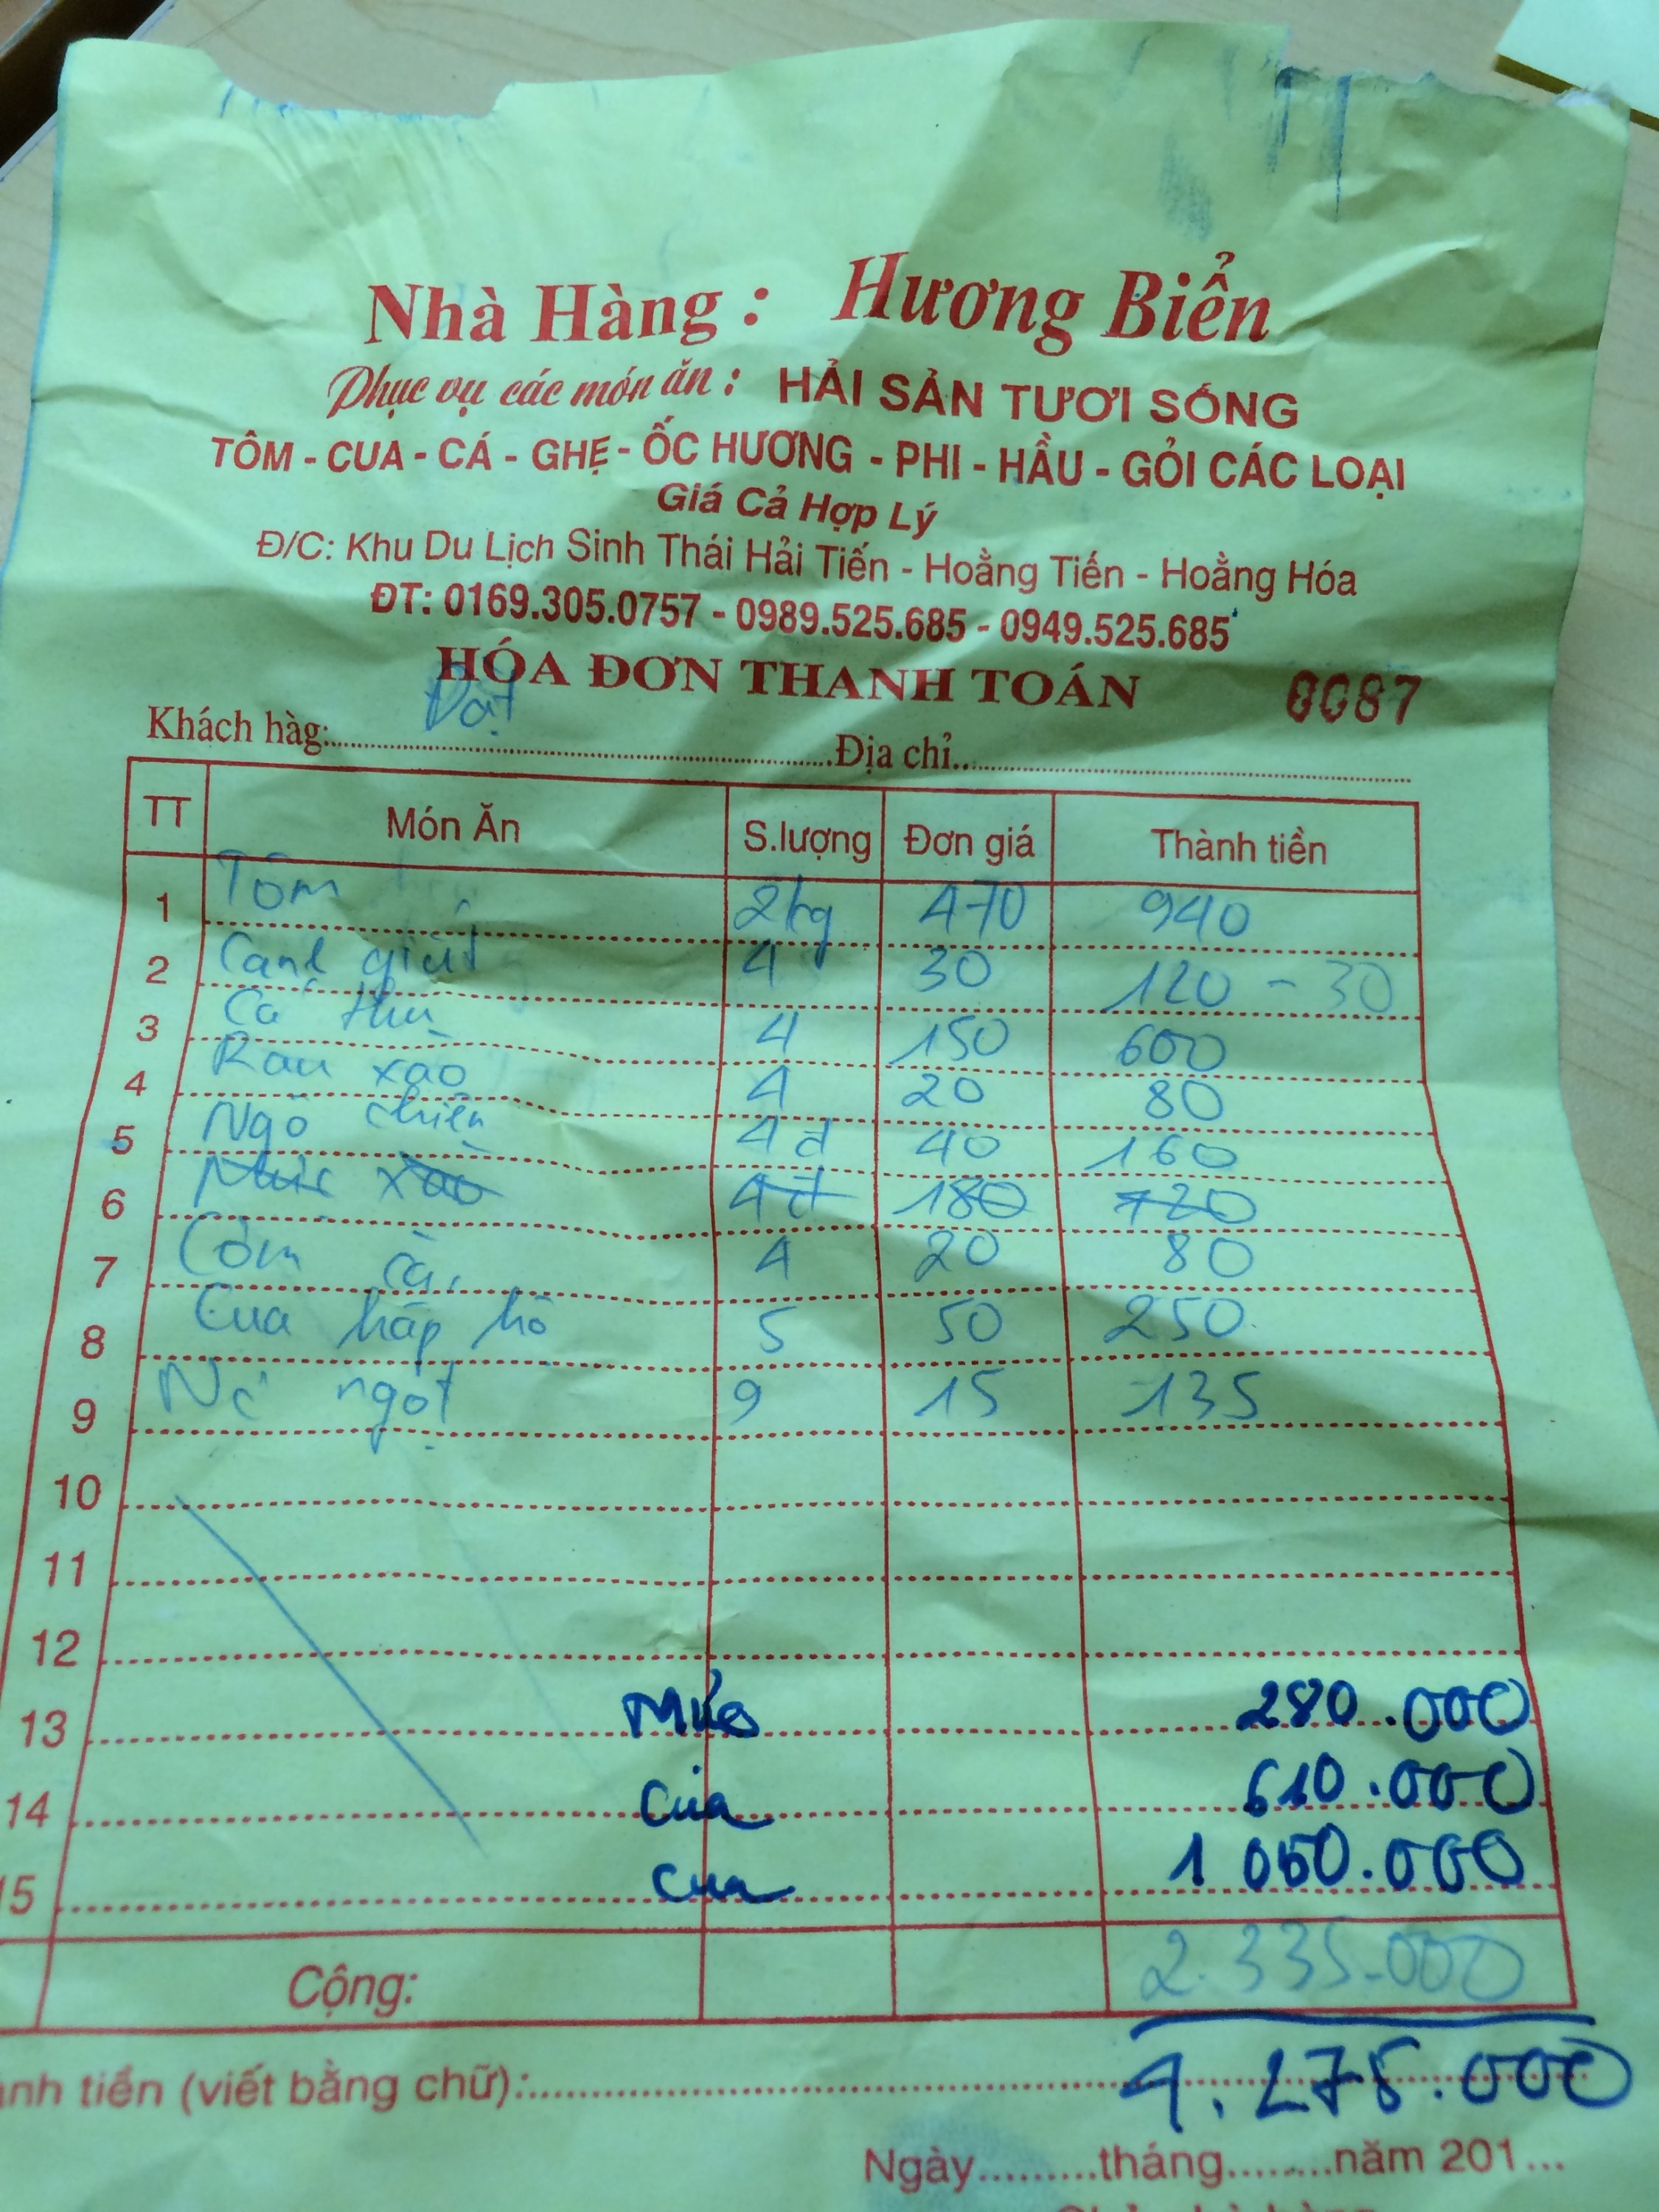 Nhà Hàng : Hương Biển
Phục vụ các món ăn : HẢI SẢN TƯƠI SỐNG
TÔM - CUA - CÁ - GHẸ - ỐC HƯƠNG - PHI - HẦU - GỎI CÁC LOẠI
Giá Cả Hợp Lý
Đ/C: Khu Du Lịch Sinh Thái Hải Tiến - Hoằng Tiến - Hoằng Hóa
ĐT: 0169.305.0757 - 0989.525.685 - 0949.525.685
HÓA ĐƠN THANH TOÁN 0087
Khách hàg: Đạt Địa chỉ
TT Món Ăn S.lượng Đơn giá Thành tiền
1 Tôm 2kg 470 940
2 Canh 4 30 120 - 30
3 Cá thu 4 150 600
4 Rau xao 4 20 80
5 Ngô chiên 4đ 40 160
6 xao 4đ 180 720
7 Cơm 4 20 80
8 Cua hấp hô 5 50 250
9 Nc ngọt 9 15 135
10
11
12
13 Mực 280.000
14 Cua 610.000
15 Cua 1 050.000
Cộng: 2.335.000
ành tiền (viết bằng chữ): 4.275.000
Ngày.........tháng........năm 201...